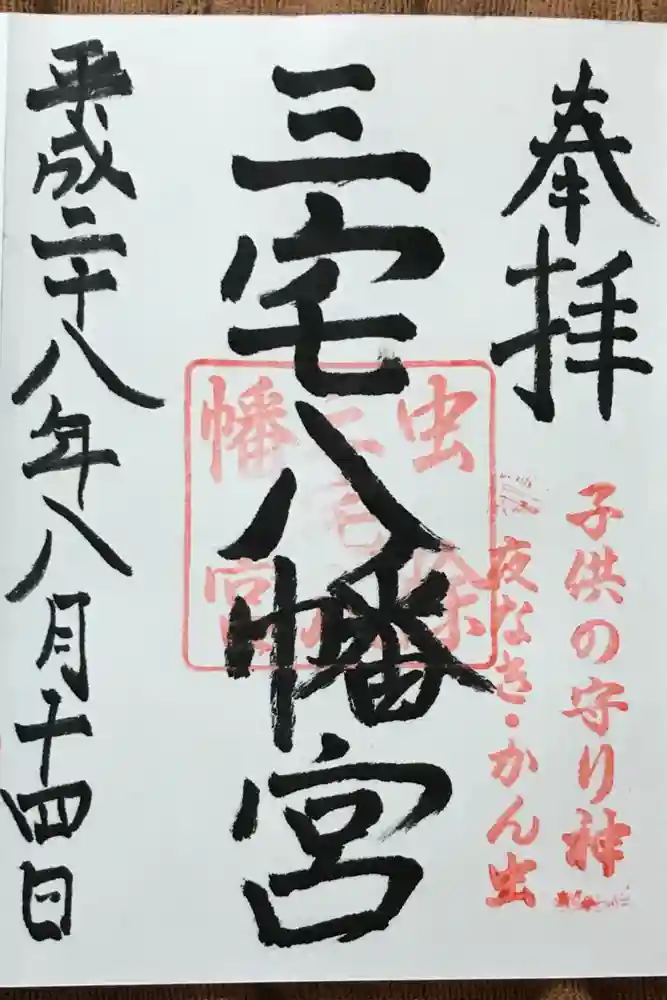 奉拝
子供の守り神
夜なき・かん虫
三宅八幡宮
虫除
三宅八
幡宮
平成二十八年八月十四日